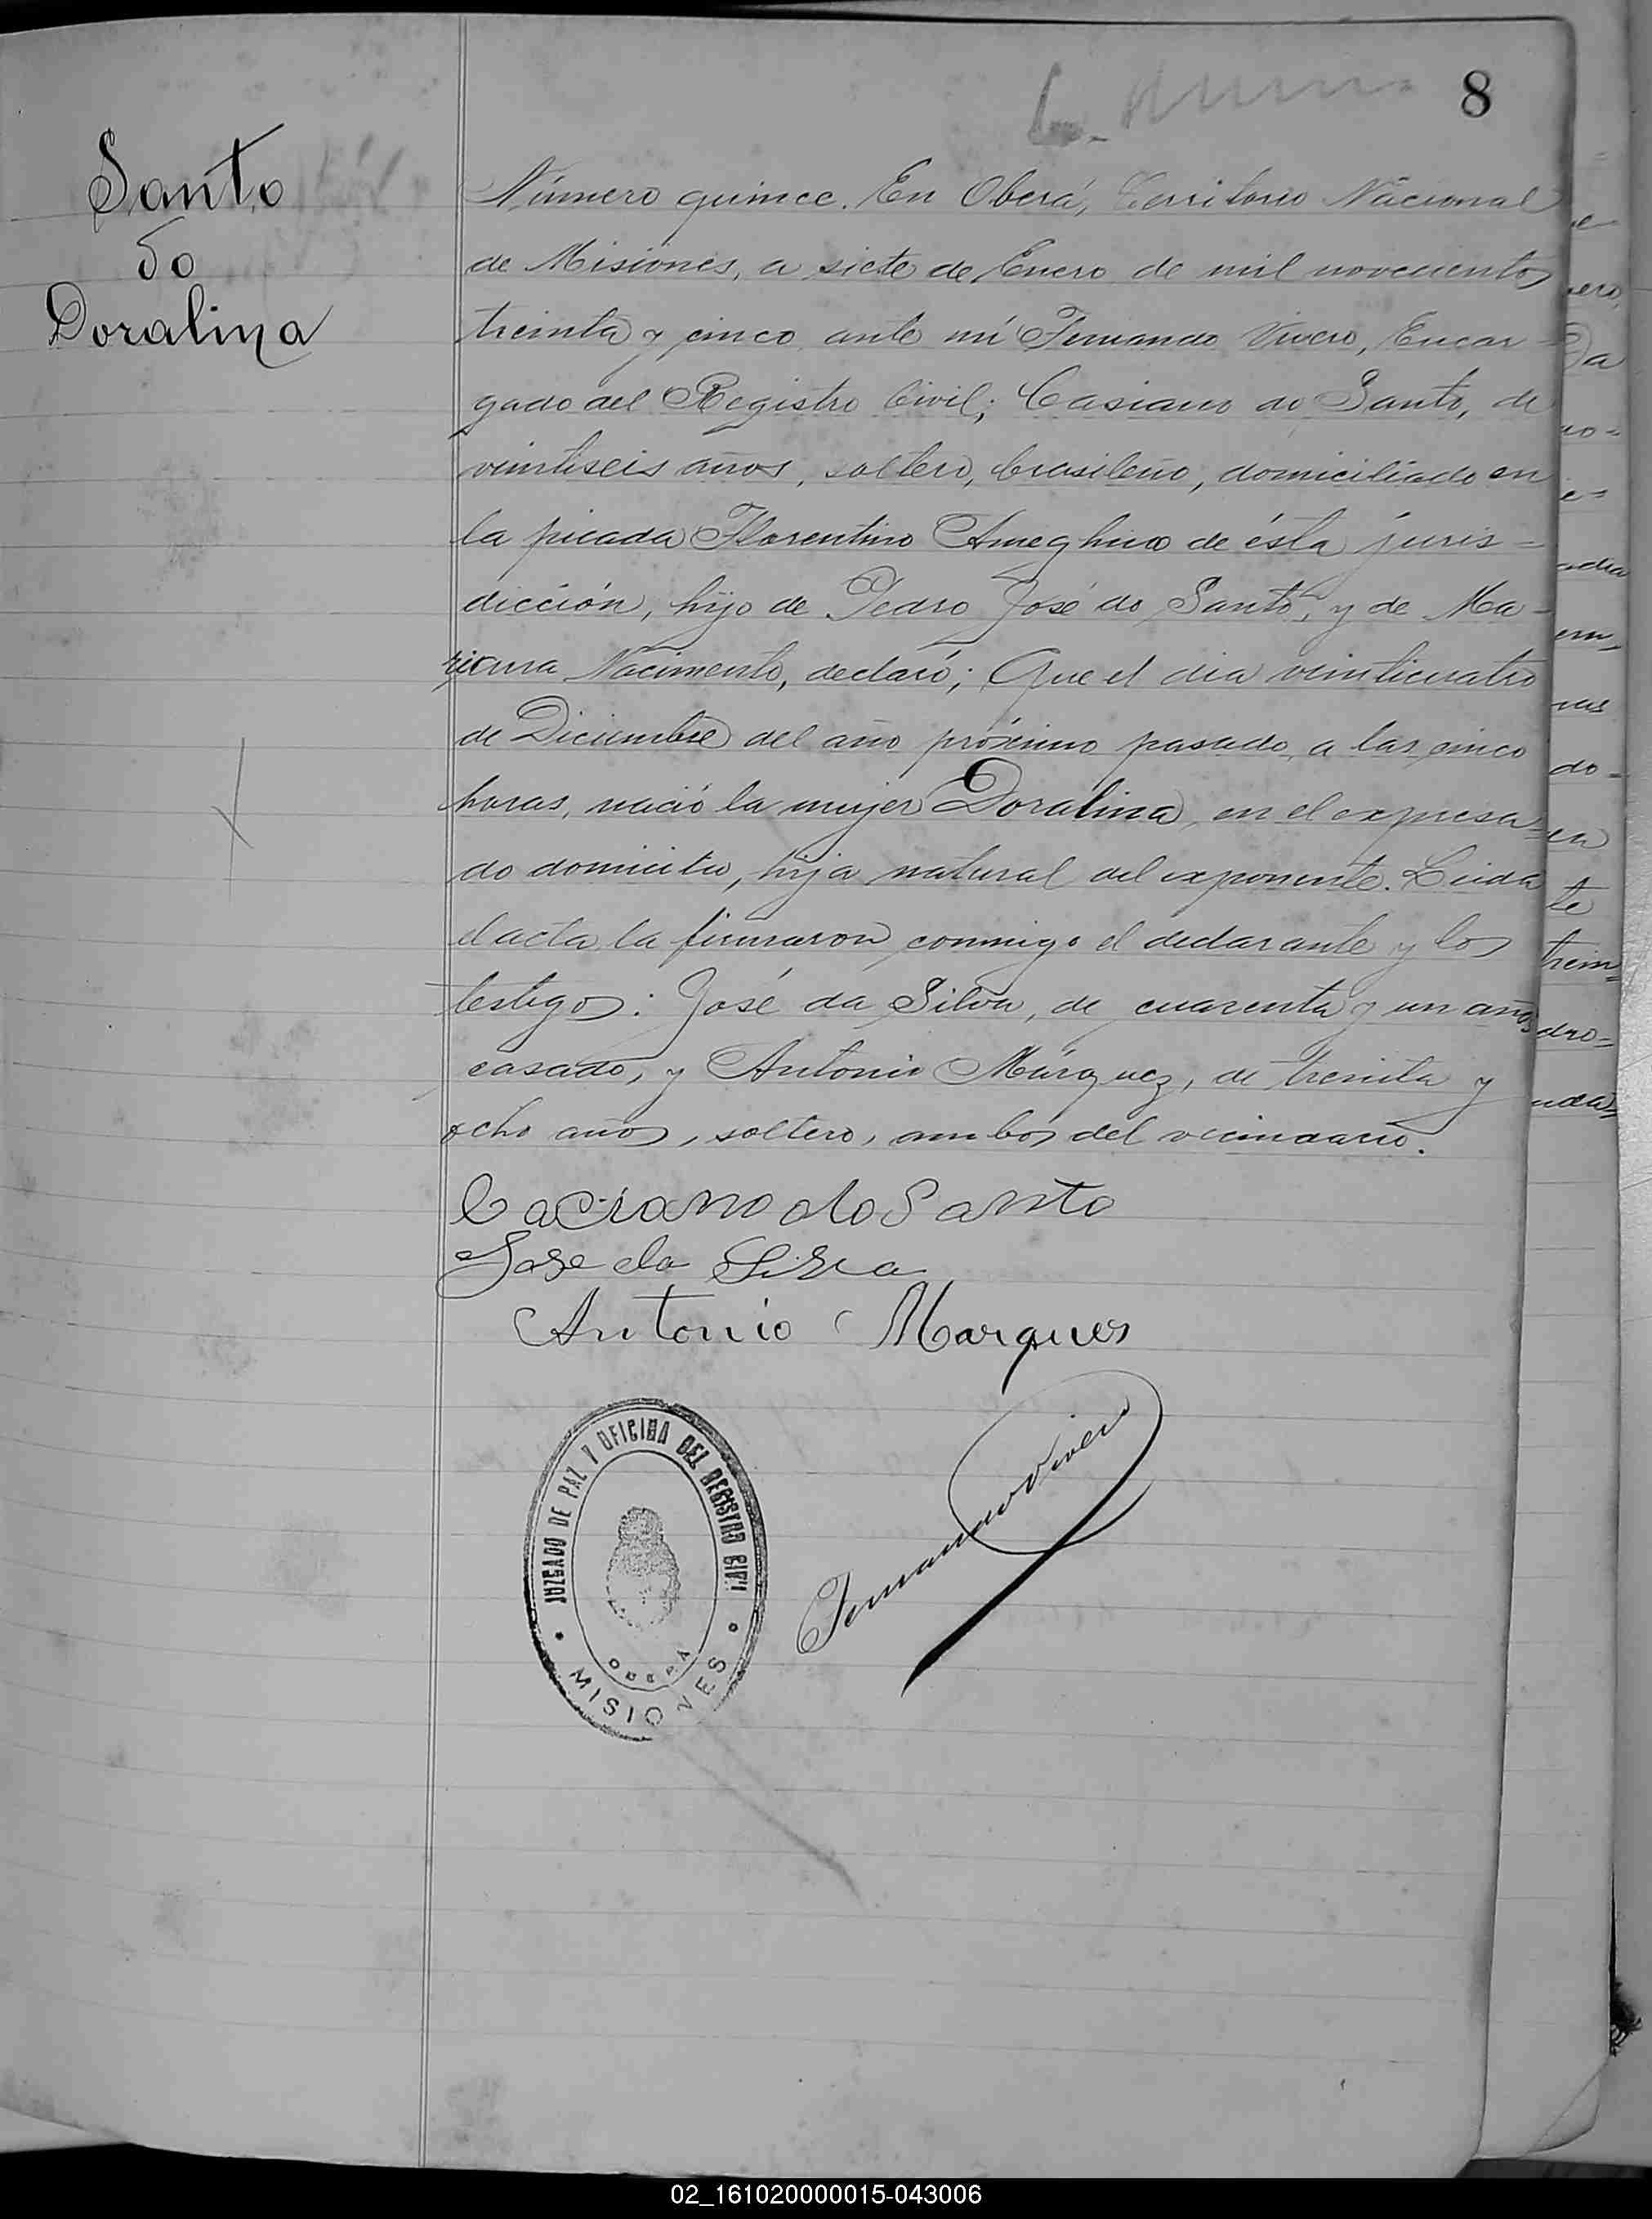 8
Santo
do
Doralina
Número quince. En Oberá, Territorio Nacional
de Misiones, a siete de Enero de mil novecientos
treinta y cinco ante mí Fernando Vivero, Encar-
gado del Registro Civil; Casiano do Santo, de
veintiseis años, soltero, brasileño, domiciliado en
la picada Florentino Ameghino de ésta juris-
dicción, hijo de Pedro José do Santo, y de Ma-
riana Nacimento, declaró; Que el dia veinticuatro
de Diciembre del año próximo pasado, a las cinco
horas, nació la mujer Doralina, en el expresa-
do domicilio, hija natural del exponente. Leida
el acta la firmaron conmigo el declarante y los
testigos: José da Silva, de cuarenta y un años
casado, y Antonio Márquez, de treinta y
ocho años, soltero, ambos del vecindario.
Caciano do Santo
Jose da Silva
Antonio Marques
Fernando Vivero
JUZGADO DE PAZ Y OFICINA DEL REGISTRO CIVIL
OBERÁ
MISIONES
02_161020000015-043006